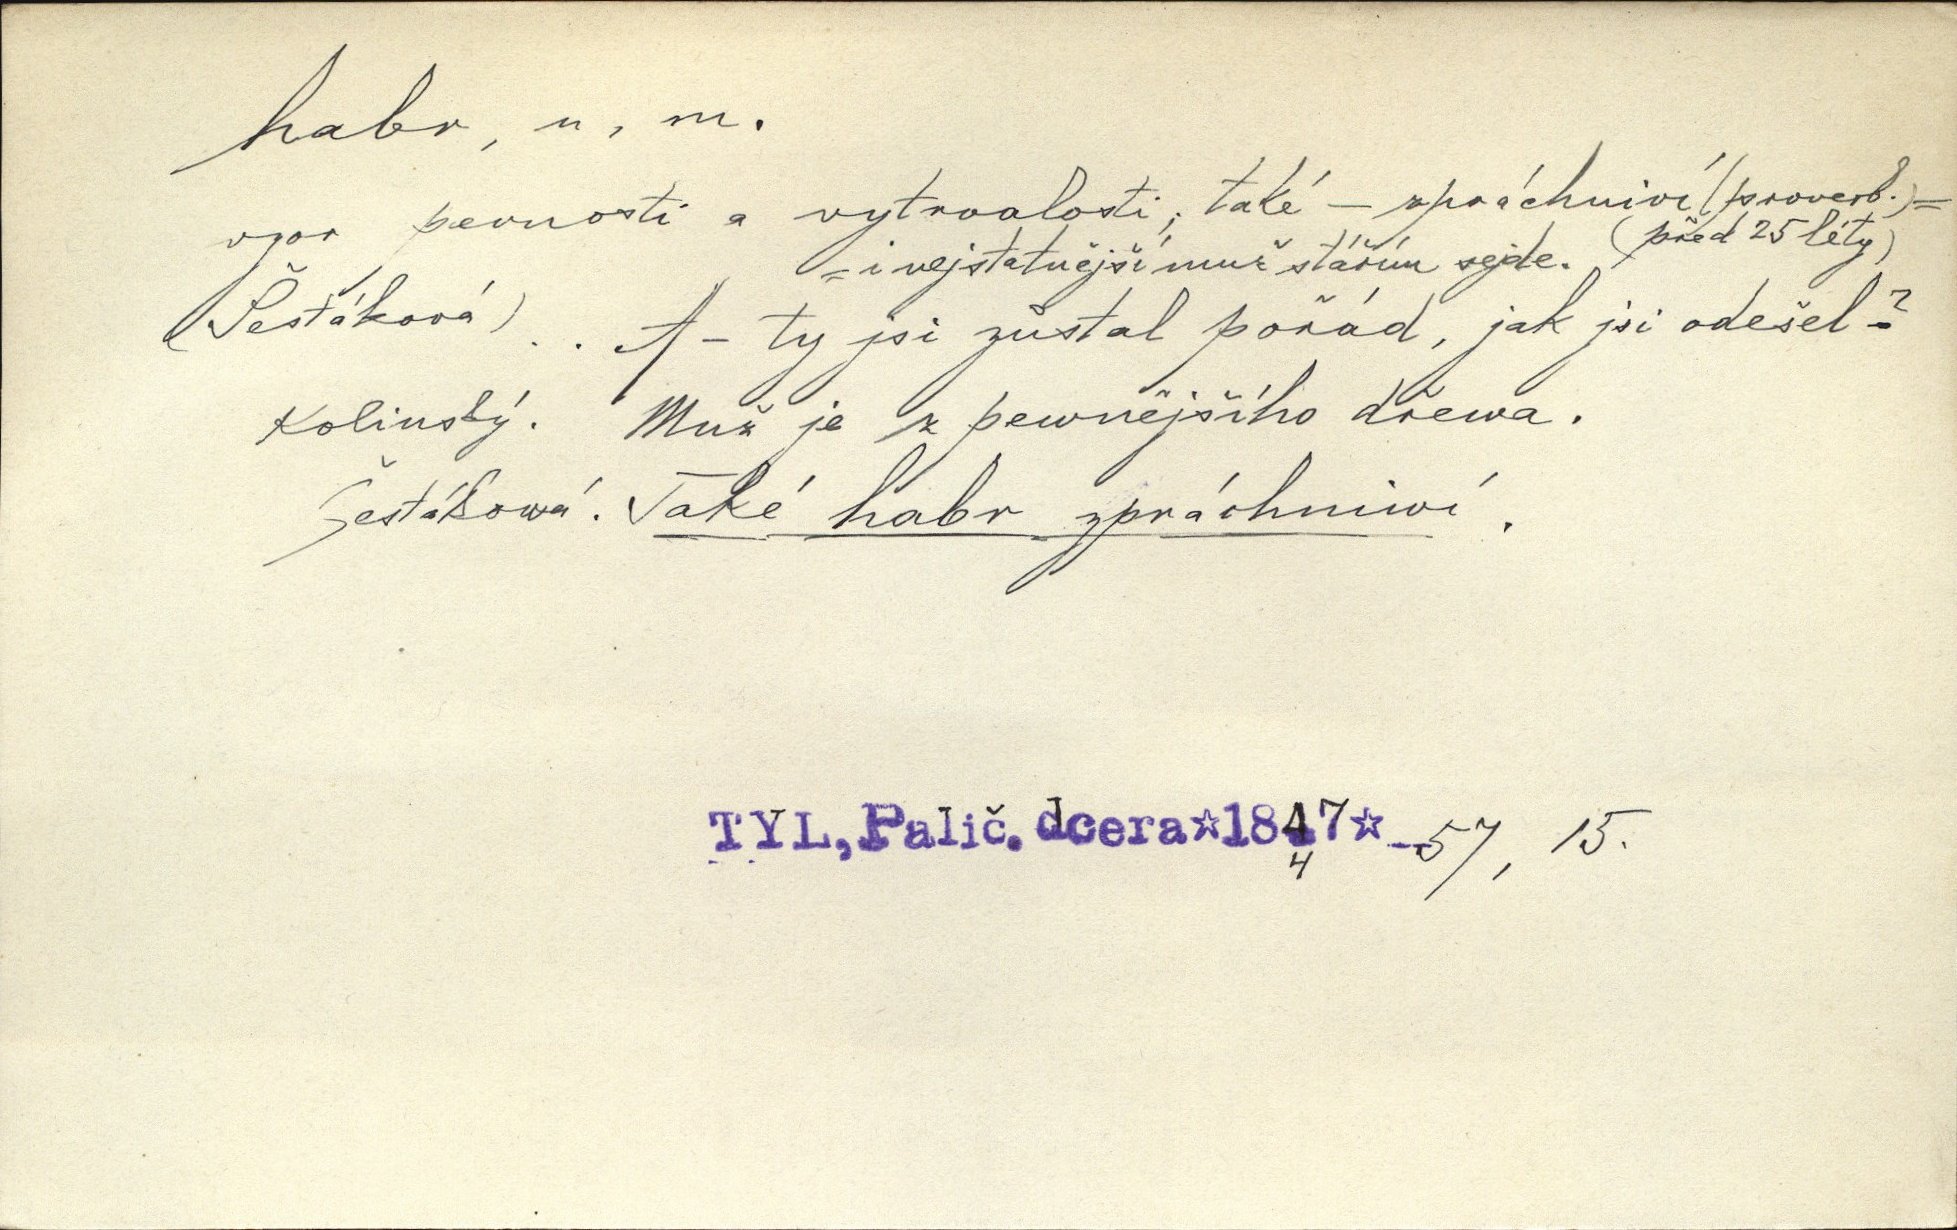 habr, u, m.
vzor pevnosti a vytrvalosti; také – zpráchniví (proverb.) =
= i nejstatnější muž stářím sejde. (před 25 léty)
(Šestáková) .. A – ty jsi zůstal pořád, jak jsi odešel –?
Kolinský. Muž je z pewnějšího dřewa.
Šestákowá. Také habr zpráchniwí.
TYL, Palič. dcera☆1847☆ 57, 15.
4